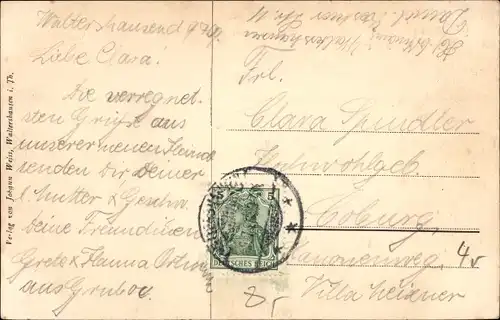 Waltershausend 9 7 09.
Liebe Clara!
Die verregnet-
sten Grüße aus
unserer neuen Heimat
senden dir Deiner
l. Mutter & Geschw.
deine Freundinen
Grete & Hanna
aus Grubov
Verlag von Johann Weiss, Waltershausen i. Th.
Waltershausen
Frl.
Clara Spindler
Hochwohlgeb.
Coburg
4
Villa Meixner
DEUTSCHES REICH
5